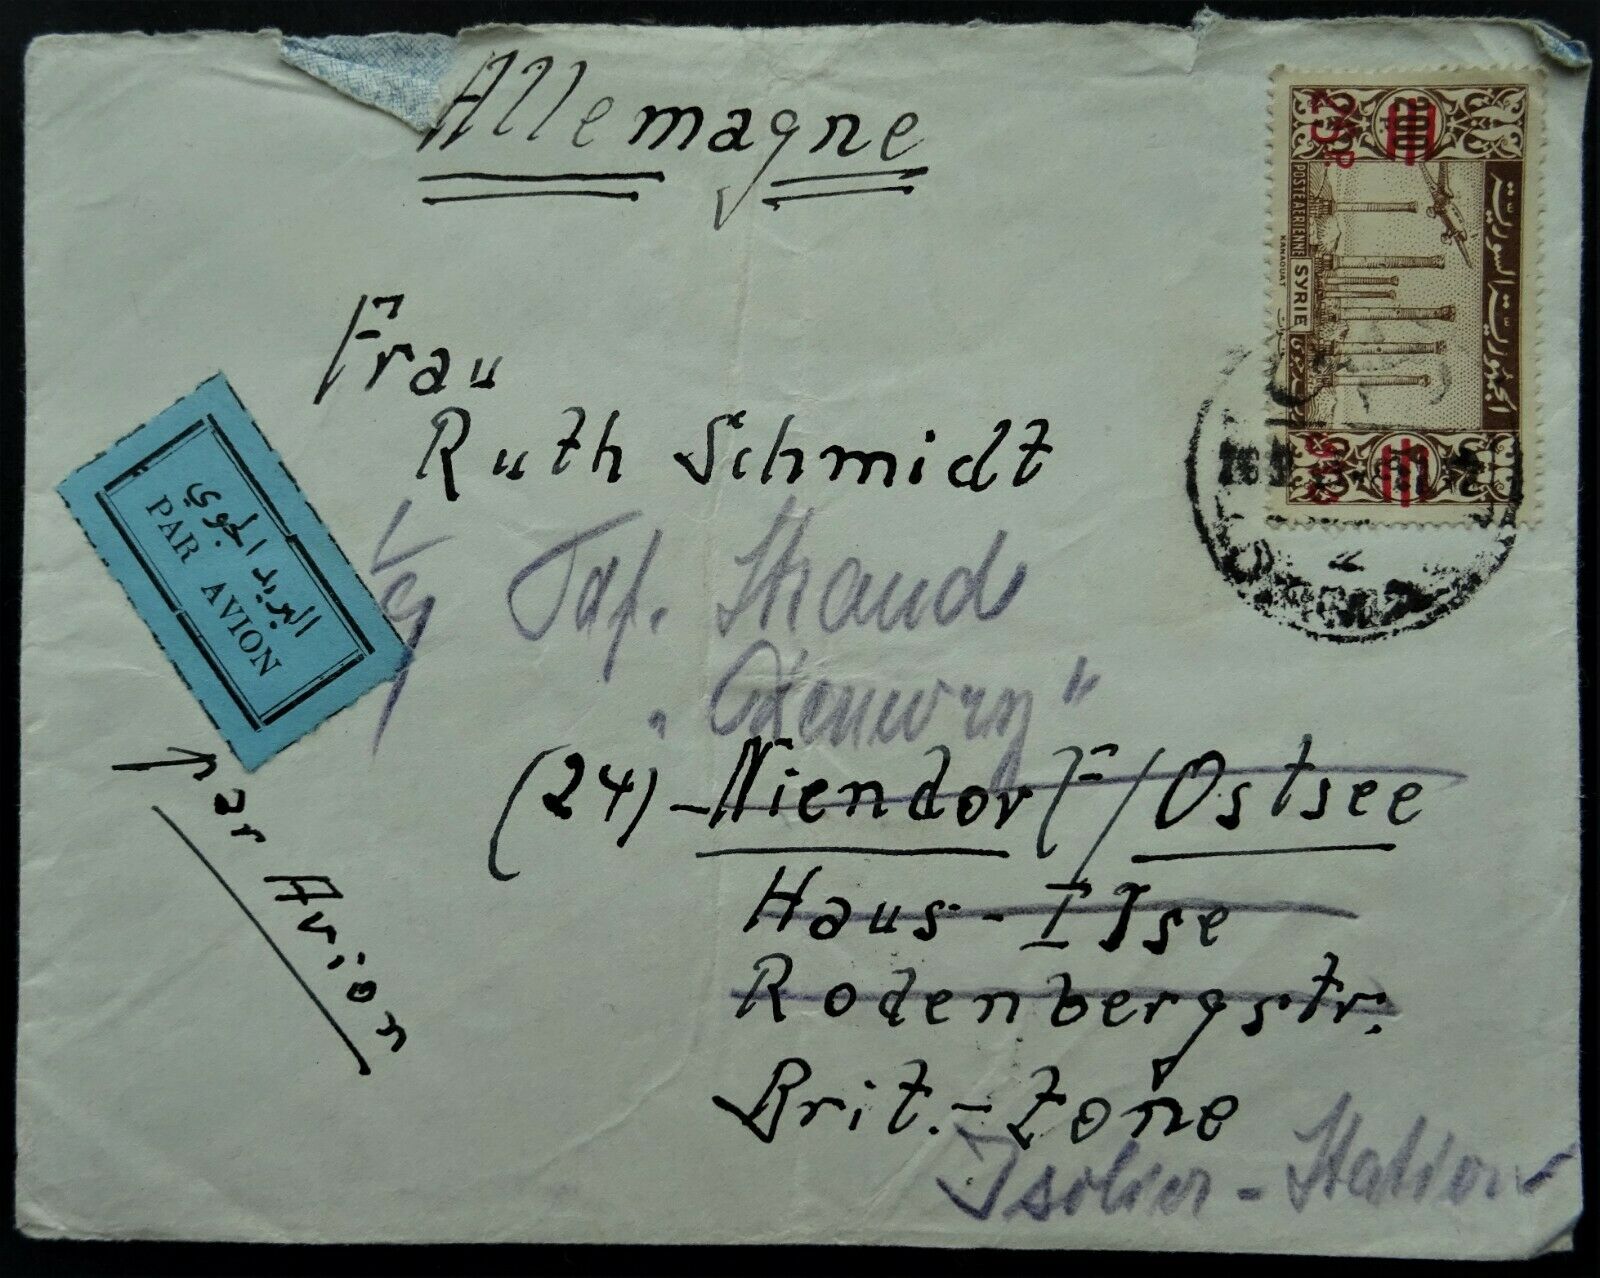 Allemagne
الجمهورية السورية
200
25 P.
POSTE AERIENNE
SYRIE
KANAOUAT
Frau
Ruth Schmidt
البريد الجوي
PAR AVION
Strand
(24) - Niendorf / Ostsee
Haus - Ilse
Rodenbergstr.
Brit. - Zone
Isolier - Station
Par Avion